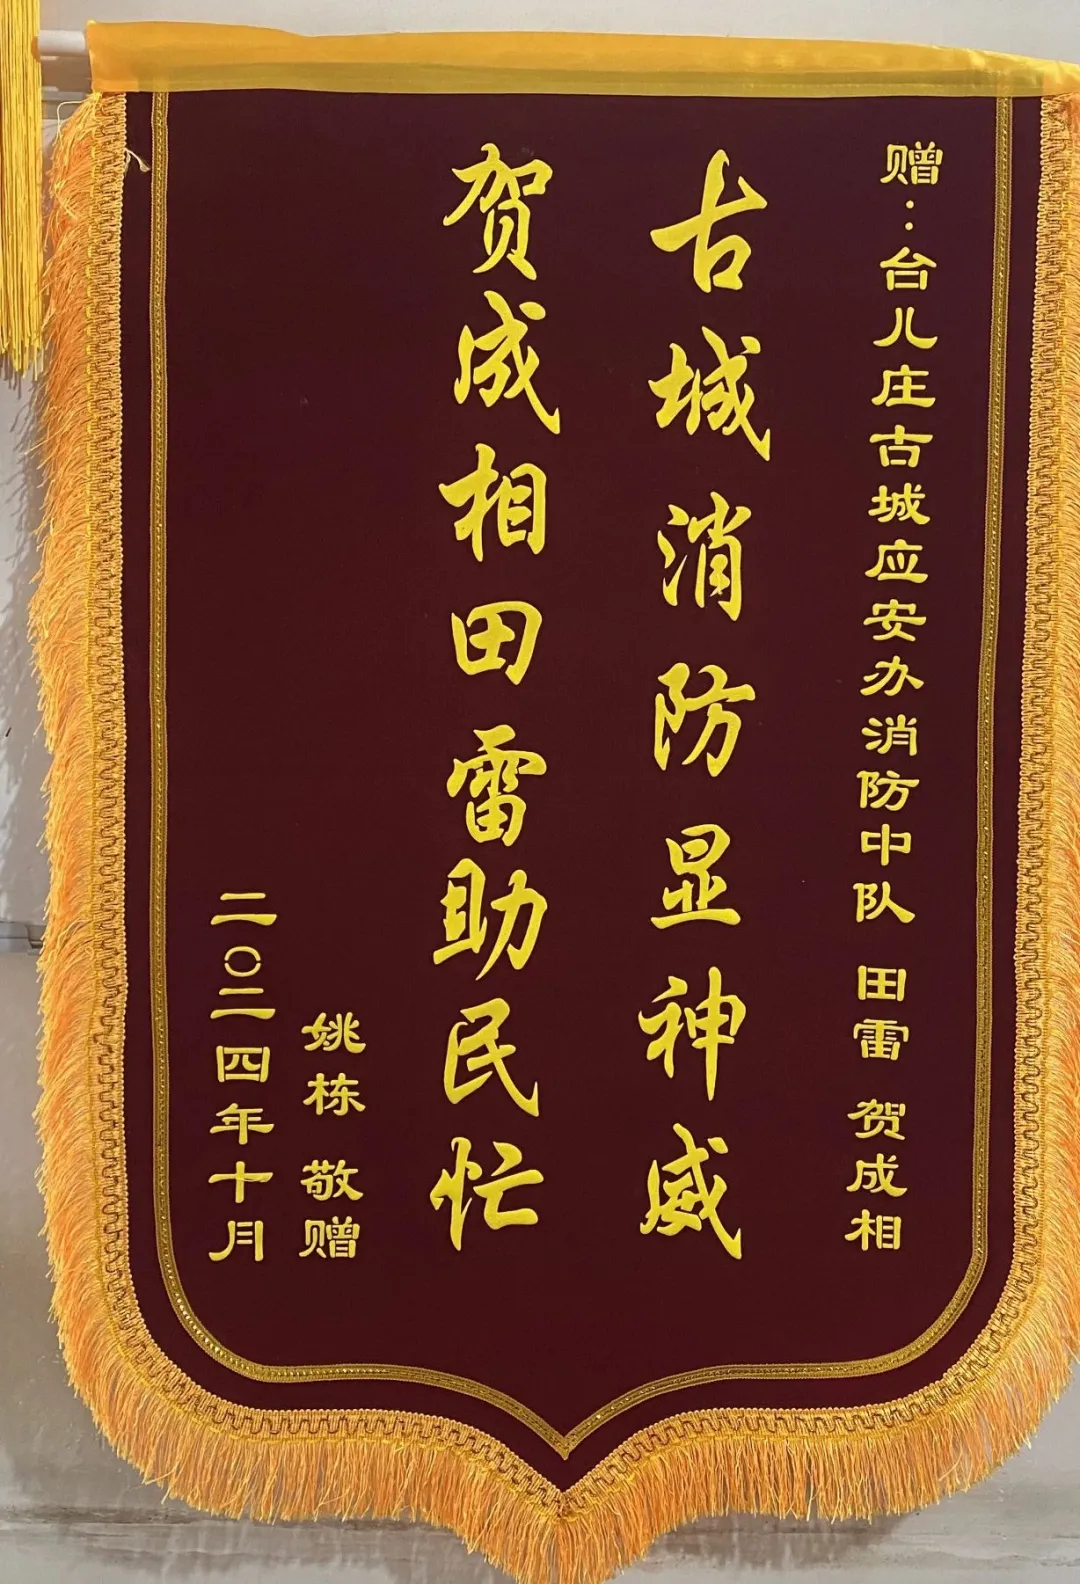 赠：台儿庄古城应安办消防中队 田雷 贺成相
古城消防显神威
贺成相田雷助民忙
姚栋 敬赠
二〇二四年十月